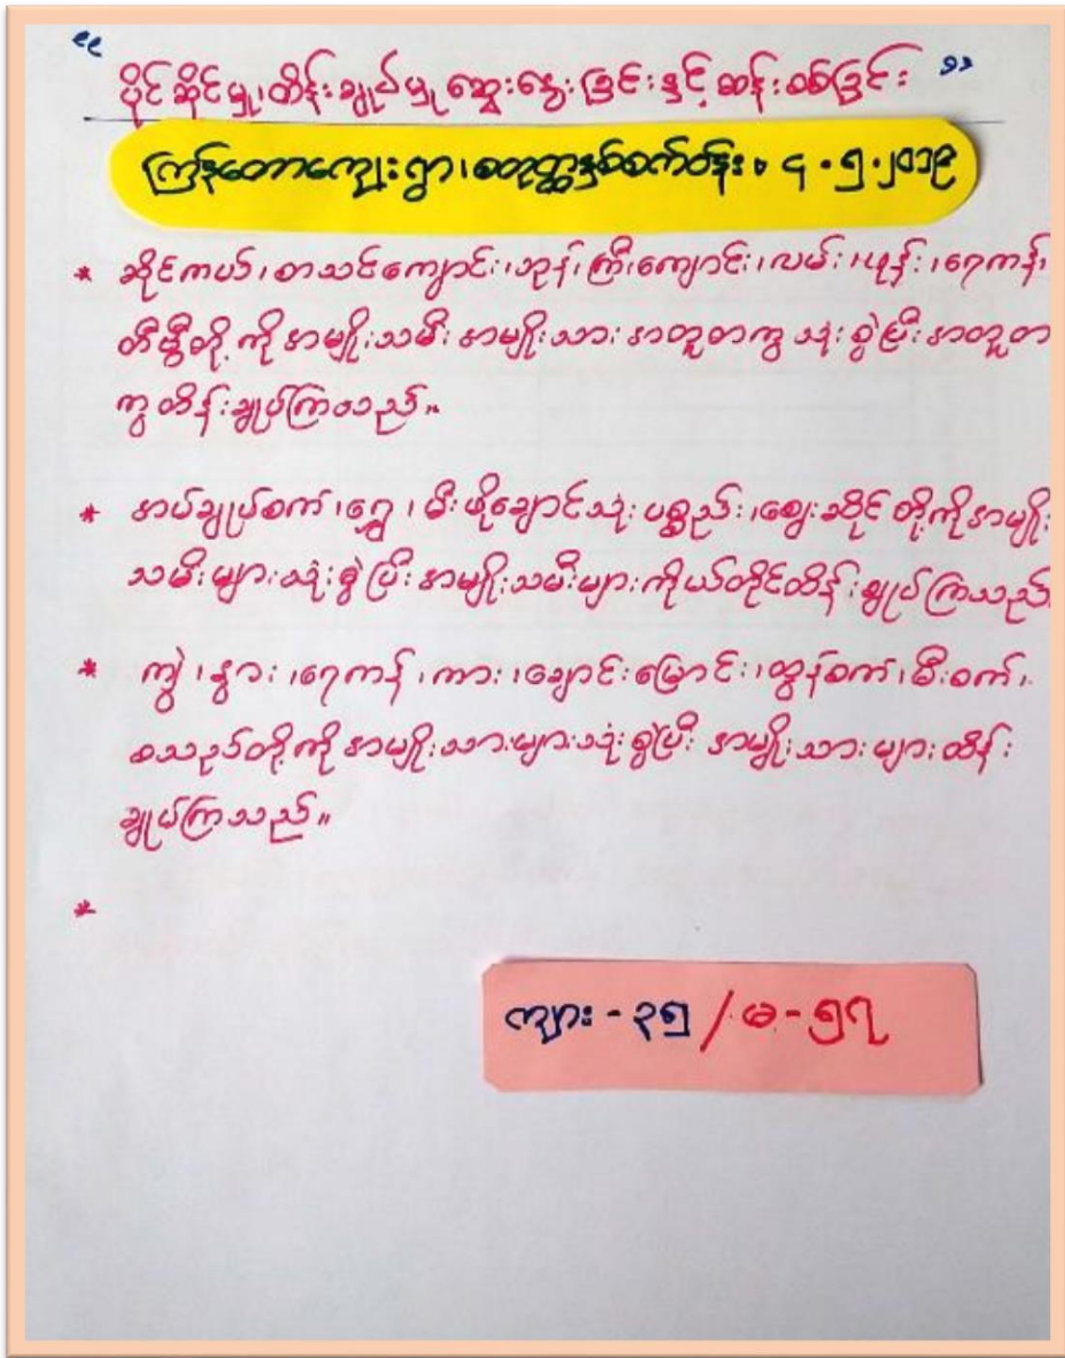 “ ပိုင်ဆိုင်မှု၊ထိန်းချုပ်မှု ဆွေးနွေးခြင်းနှင့်ဆန်းစစ်ခြင်း ”
ကြံနတောကျေးရွာ၊စတုတ္ထနှစ်စက်ဝန်း။ ၎.၅.၂၀၁၉
* ဆိုင်ကယ်၊စာသင်ကျောင်း၊ဘုန်းကြီးကျောင်း၊လမ်း၊ဖုန်း၊ရေကန်၊
တီဗွီတို့ကိုအမျိုးသမီး အမျိုးသား အတူတကွ သုံးစွဲပြီးအတူတ
ကွထိန်းချုပ်ကြသည်။
* အပ်ချုပ်စက်၊ရွှေ၊မီးဖိုချောင်သုံးပစ္စည်း၊ဈေးဆိုင်တို့ကိုအမျိုး
သမီးများသုံးစွဲပြီးအမျိုးသမီးများကိုယ်တိုင်ထိန်းချုပ်ကြသည်
* ကျွဲ၊နွား၊ရေကန်၊ကား၊ချောင်းမြောင်း၊ထွန်စက်၊မီးစက်၊
စသည်တို့ကိုအမျိုးသားများသုံးစွဲပြီး အမျိုးသားများထိန်း
ချုပ်ကြသည်။
*
ကျား - ၃၅ / မ - ၅၇